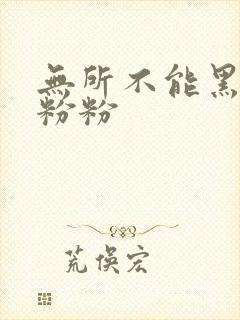 無所不能黑
粉粉
荒俁宏